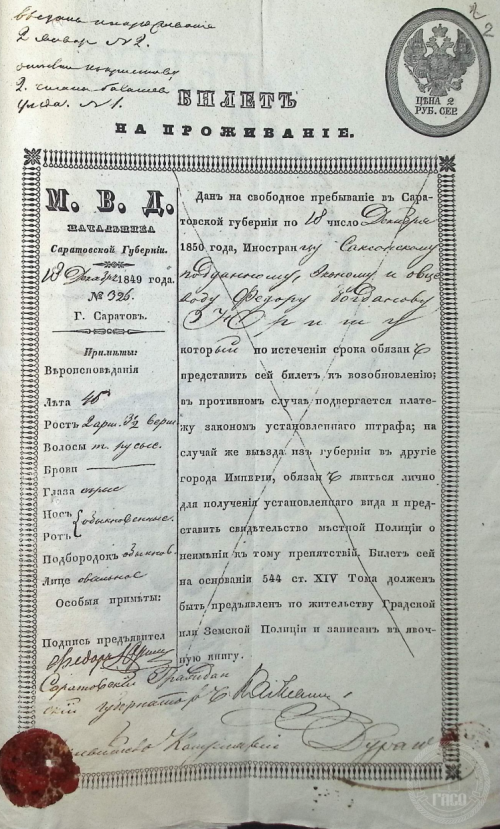 2
2
2. 
№2.
2.
№1.
ЦѢНА 2
РУБ. СЕР.
БИЛЕТЪ
НА ПРОЖИВАНІЕ.
М. В. Д.
НАЧАЛЬНИКА
Саратовской Губерніи.
18 Декабря 1849 года.
№ 326.
Г. Саратовъ.
Примѣты:
Вѣроисповѣданія
Лѣта 46
Ростъ 2 арш. 3½ верш.
Волосы т. русые.
Брови —
Глаза сѣрые
Носъ
Ротъ } обыкновенные.
Подбородокъ обыкнов.
Лице овальное
Особыя примѣты:
Подпись предъявител
Федоръ
Саратовскій Граждан
скій губернаторъ
Дан на свободное пребываніе въ Сара-
товской губерніи по 18 число Декабря
1850 года, Иностранцу Саксонскому
подданному, эконому и овце
воду Федору Богданову
Юришу
который по истеченіи срока обязанъ
представить сей билетъ къ возобновленію;
въ противномъ случаѣ подвергается плате-
жу закономъ установленнаго штрафа; на
случай же выѣзда изъ губерніи въ другіе
города Имперіи, обязанъ явиться лично
для полученія установленнаго вида и пред-
ставить свидѣтельство мѣстной Полиціи о
неимѣніи къ тому препятствій. Билетъ сей
на основаніи 544 ст. XIV Тома долженъ
быть предъявленъ по жительству Градской
или Земской Полиціи и записанъ въ явоч-
ную книгу.
Канцеляріи
ГПСО